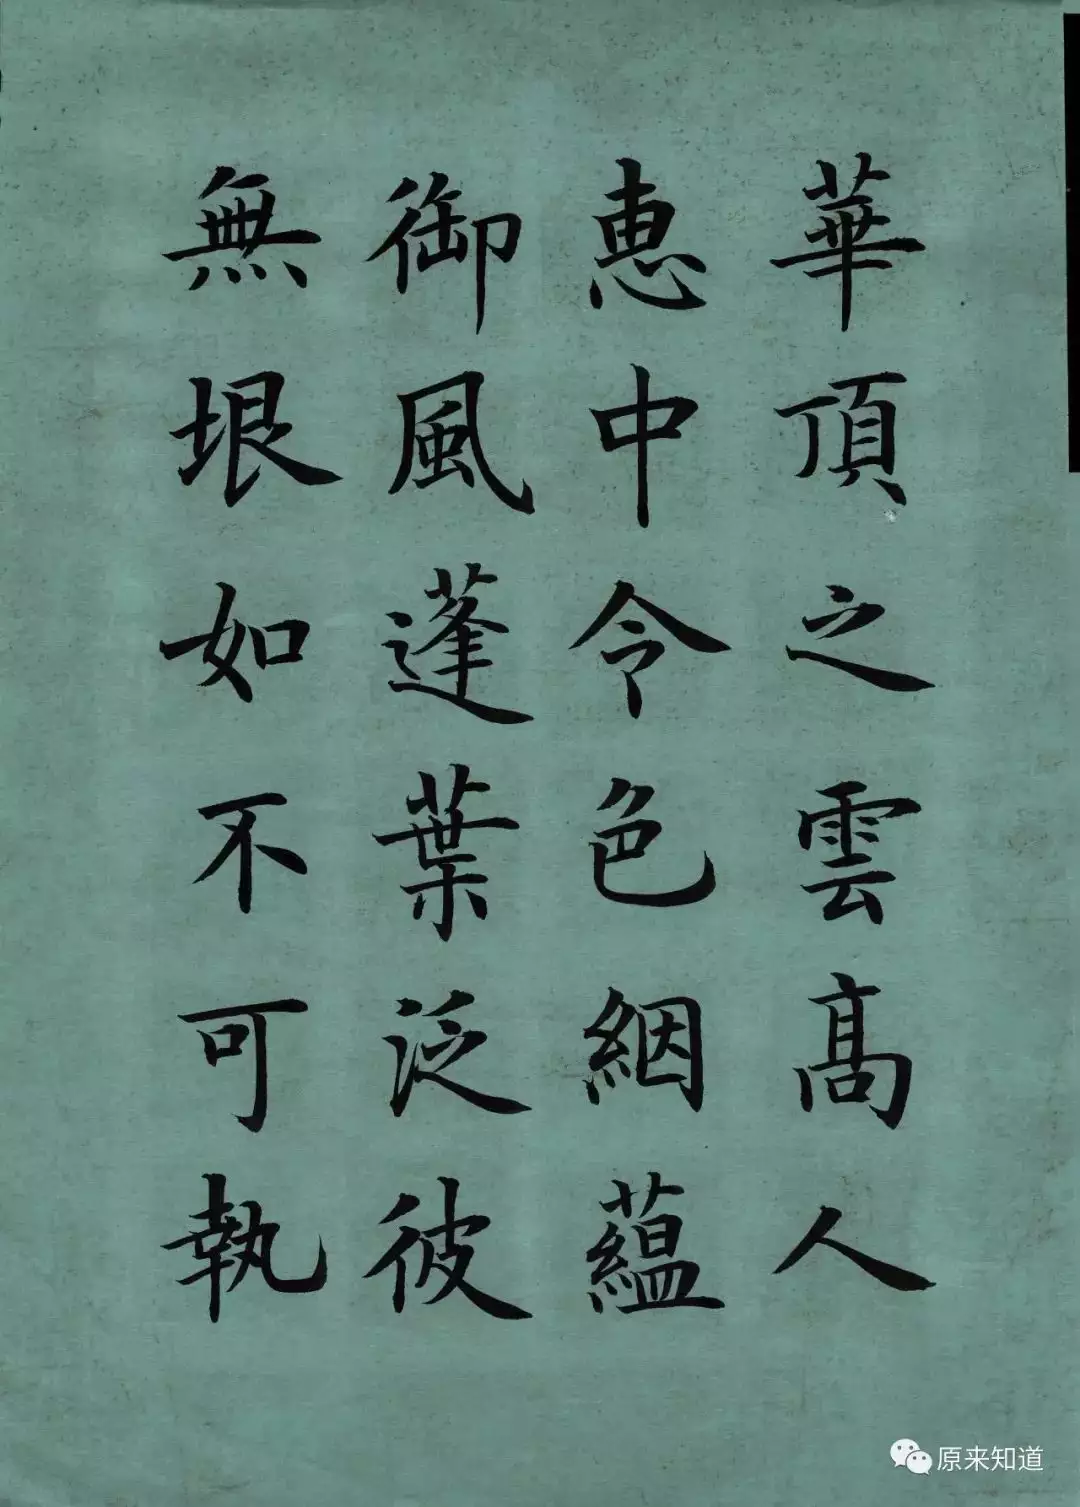 華頂之雲高人
惠中令色絪蘊
御風蓬葉泛彼
無垠如不可執
原来知道